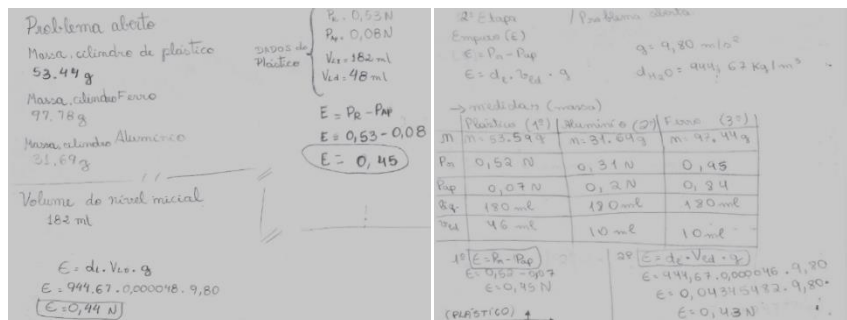 Problema aberto
Massa, cilindro de plástico
53.44 g
Massa, cilindro Ferro
97.78 g
Massa, cilindro Alumínio
31.69 g
Volume do nível inicial
182 ml
E = dL. VLD. g
E = 944.67.0,000048.9,80
E = 0,44 N
DADOS do Plástico
PR = 0,53 N
Pap = 0,08 N
VLi = 182 ml
VLd = 48 ml
E = PR - Pap
E = 0,53 - 0,08
E = 0,45
2ª Etapa / Problema aberto
Empuxo (E)
E = Pn - Pap
E = dL. vLd. g
g = 9,80 m/s²
dH2O = 944,67 Kg/m³
→ medidas (massa)
Plástico (1º) Alumínio (2º) Ferro (3º)
m m = 53.59 g m = 31.64 g m = 97.44 g
Pn 0,52 N 0,31 N 0,95
Pap 0,07 N 0,2 N 0,84
180 ml 180 ml 180 ml
46 ml 10 ml 10 ml
1º E = Pn - Pap
E = 0,52 - 0,07
E = 0,45 N
(PLÁSTICO)
2º E = dL. VLd. g
E = 944,67.0,000046.9,80
E = 0,04345482.9,80
E = 0,43 N